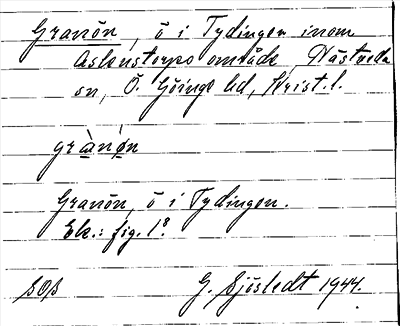 Granön, ö i Tydingen inom
Askestorps område, Nästveda
sn, Ö. Göinge hd, Krist. l.
grànön
Granön, ö i Tydingen.
Ek.: fig. 1?
G. Sjöstedt 1944.